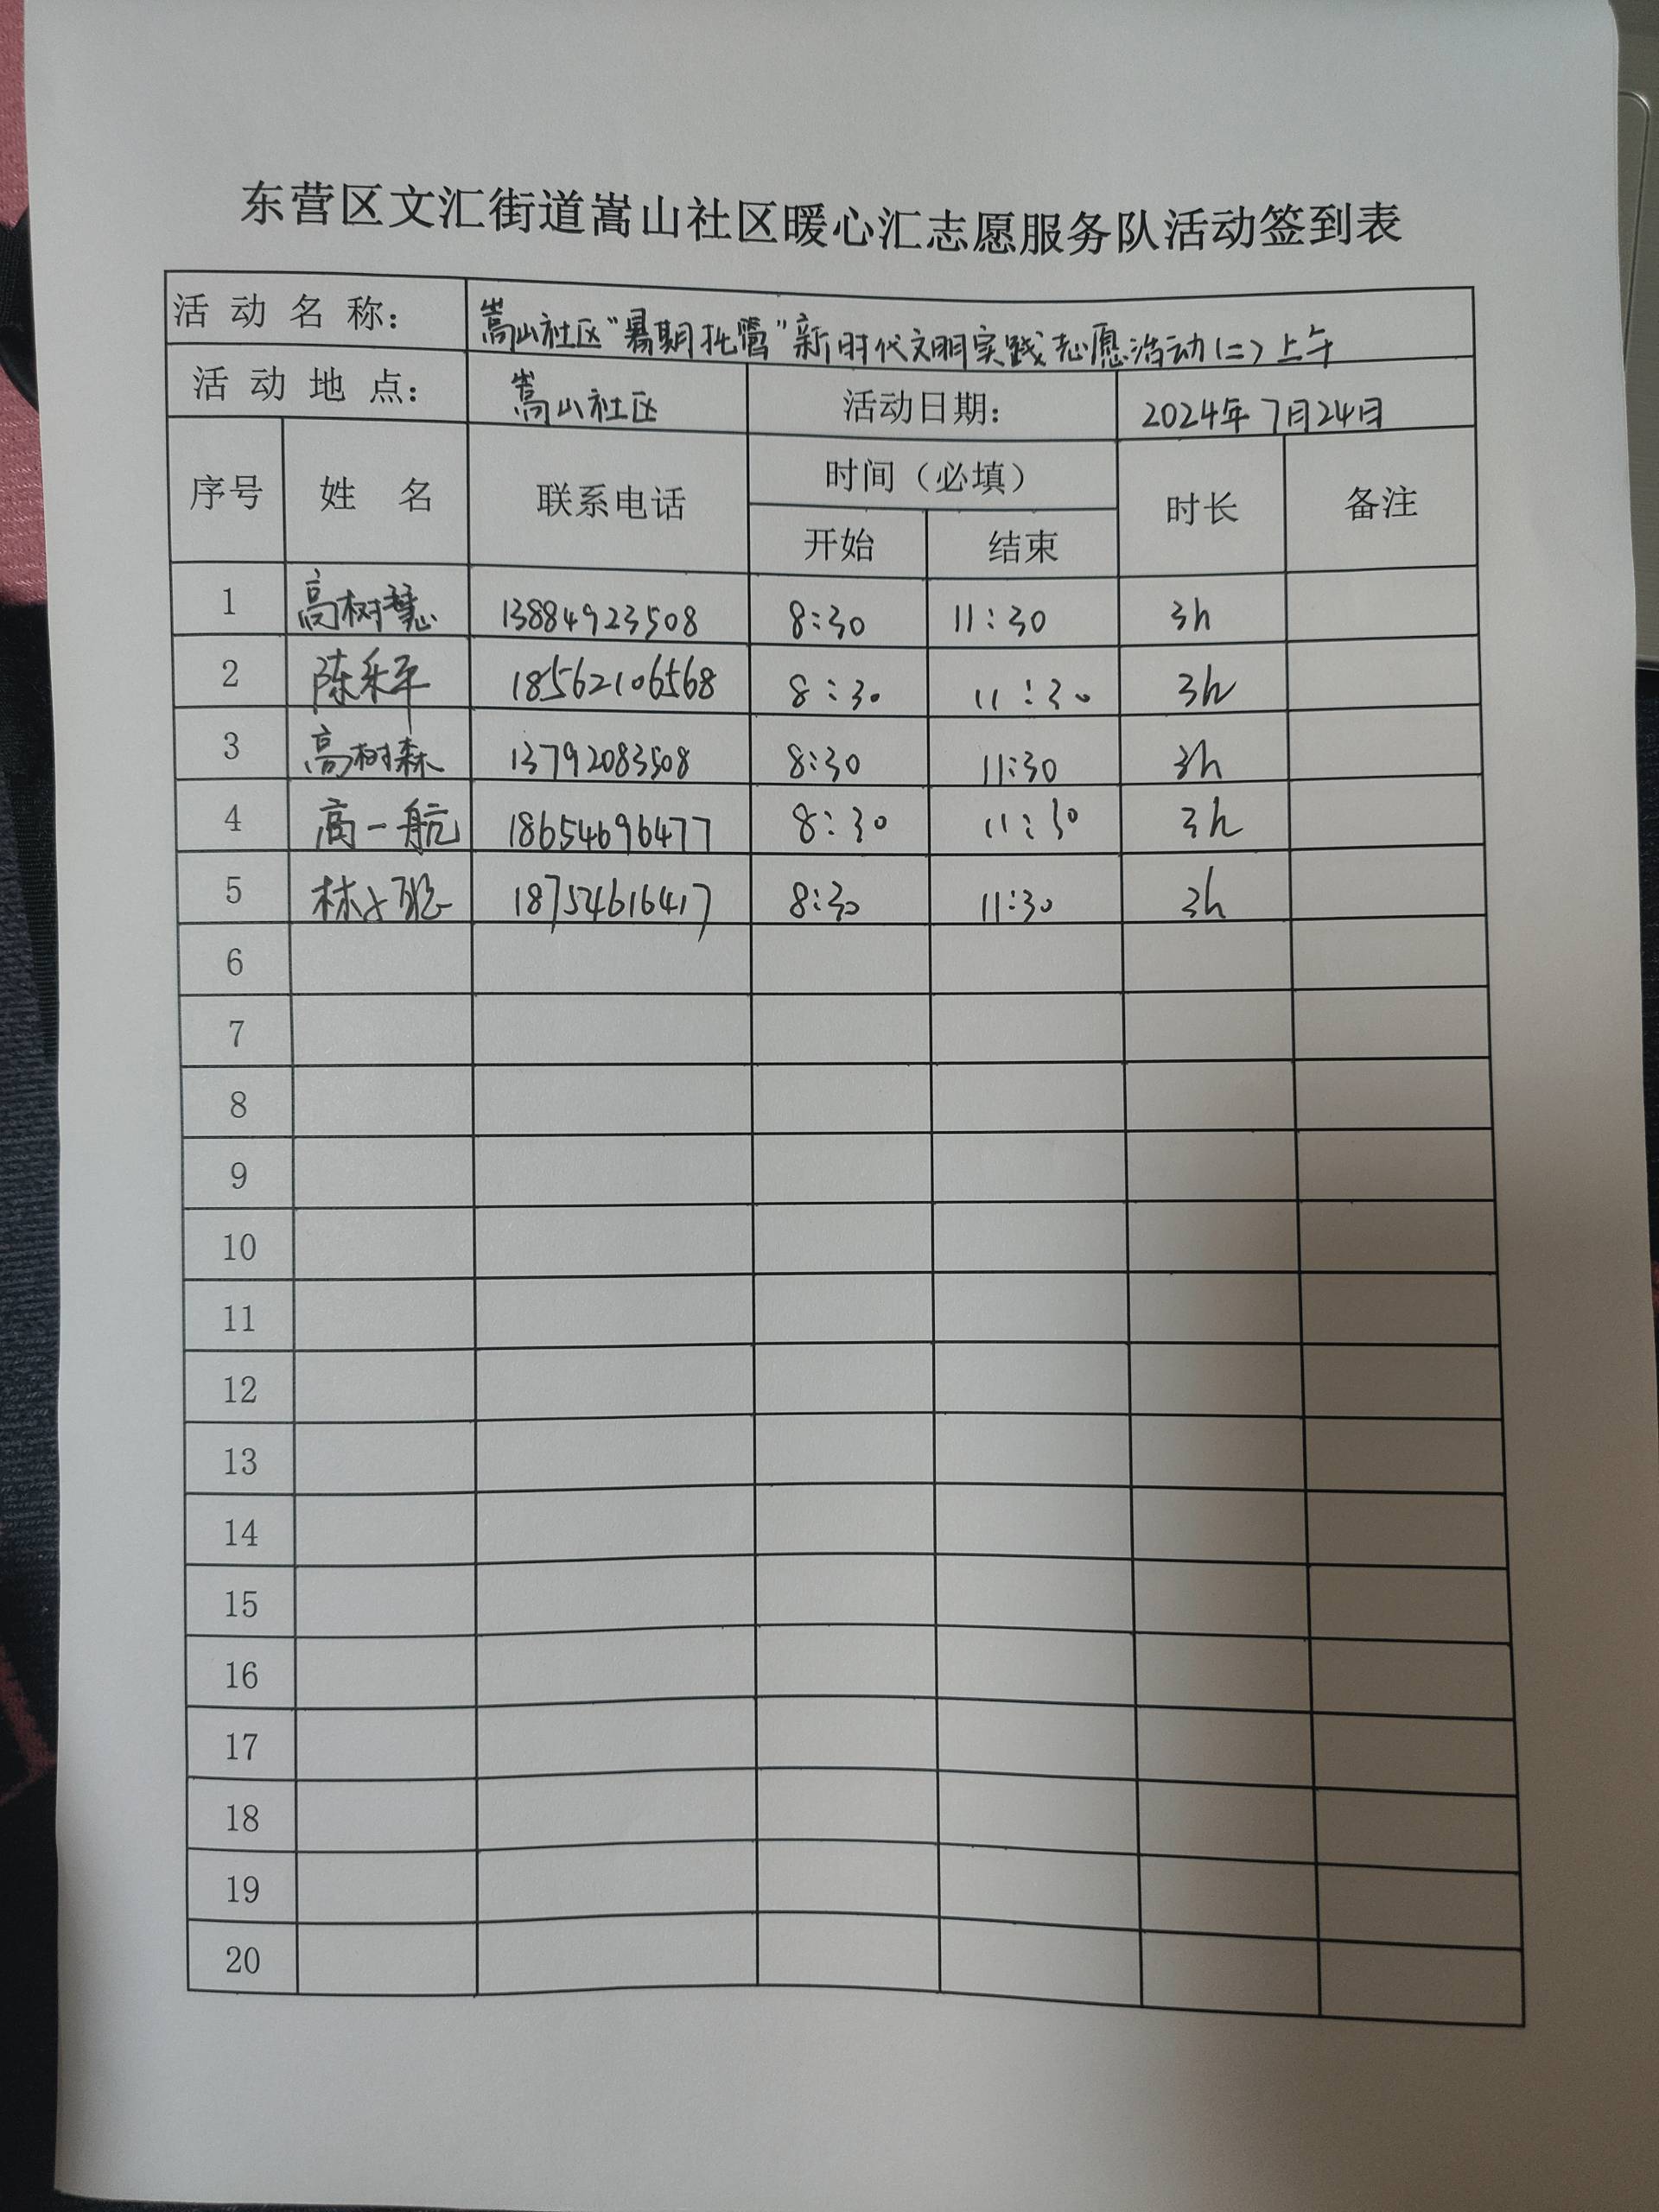 东营区文汇街道嵩山社区暖心汇志愿服务队活动签到表
活动名称： 嵩山社区“暑期托管”新时代文明实践志愿活动(二)上午
活动地点： 嵩山社区 活动日期： 2024年7月24日
序号 姓名 联系电话 时间（必填） 时长 备注
开始 结束
1 高树慧 13884923508 8:30 11:30 3h
2 陈采平 18562106568 8:30 11:30 3h
3 高树森 13792083508 8:30 11:30 3h
4 高一航 18654696477 8:30 11:30 3h
5 林 18754616417 8:30 11:30 3h
6
7
8
9
10
11
12
13
14
15
16
17
18
19
20